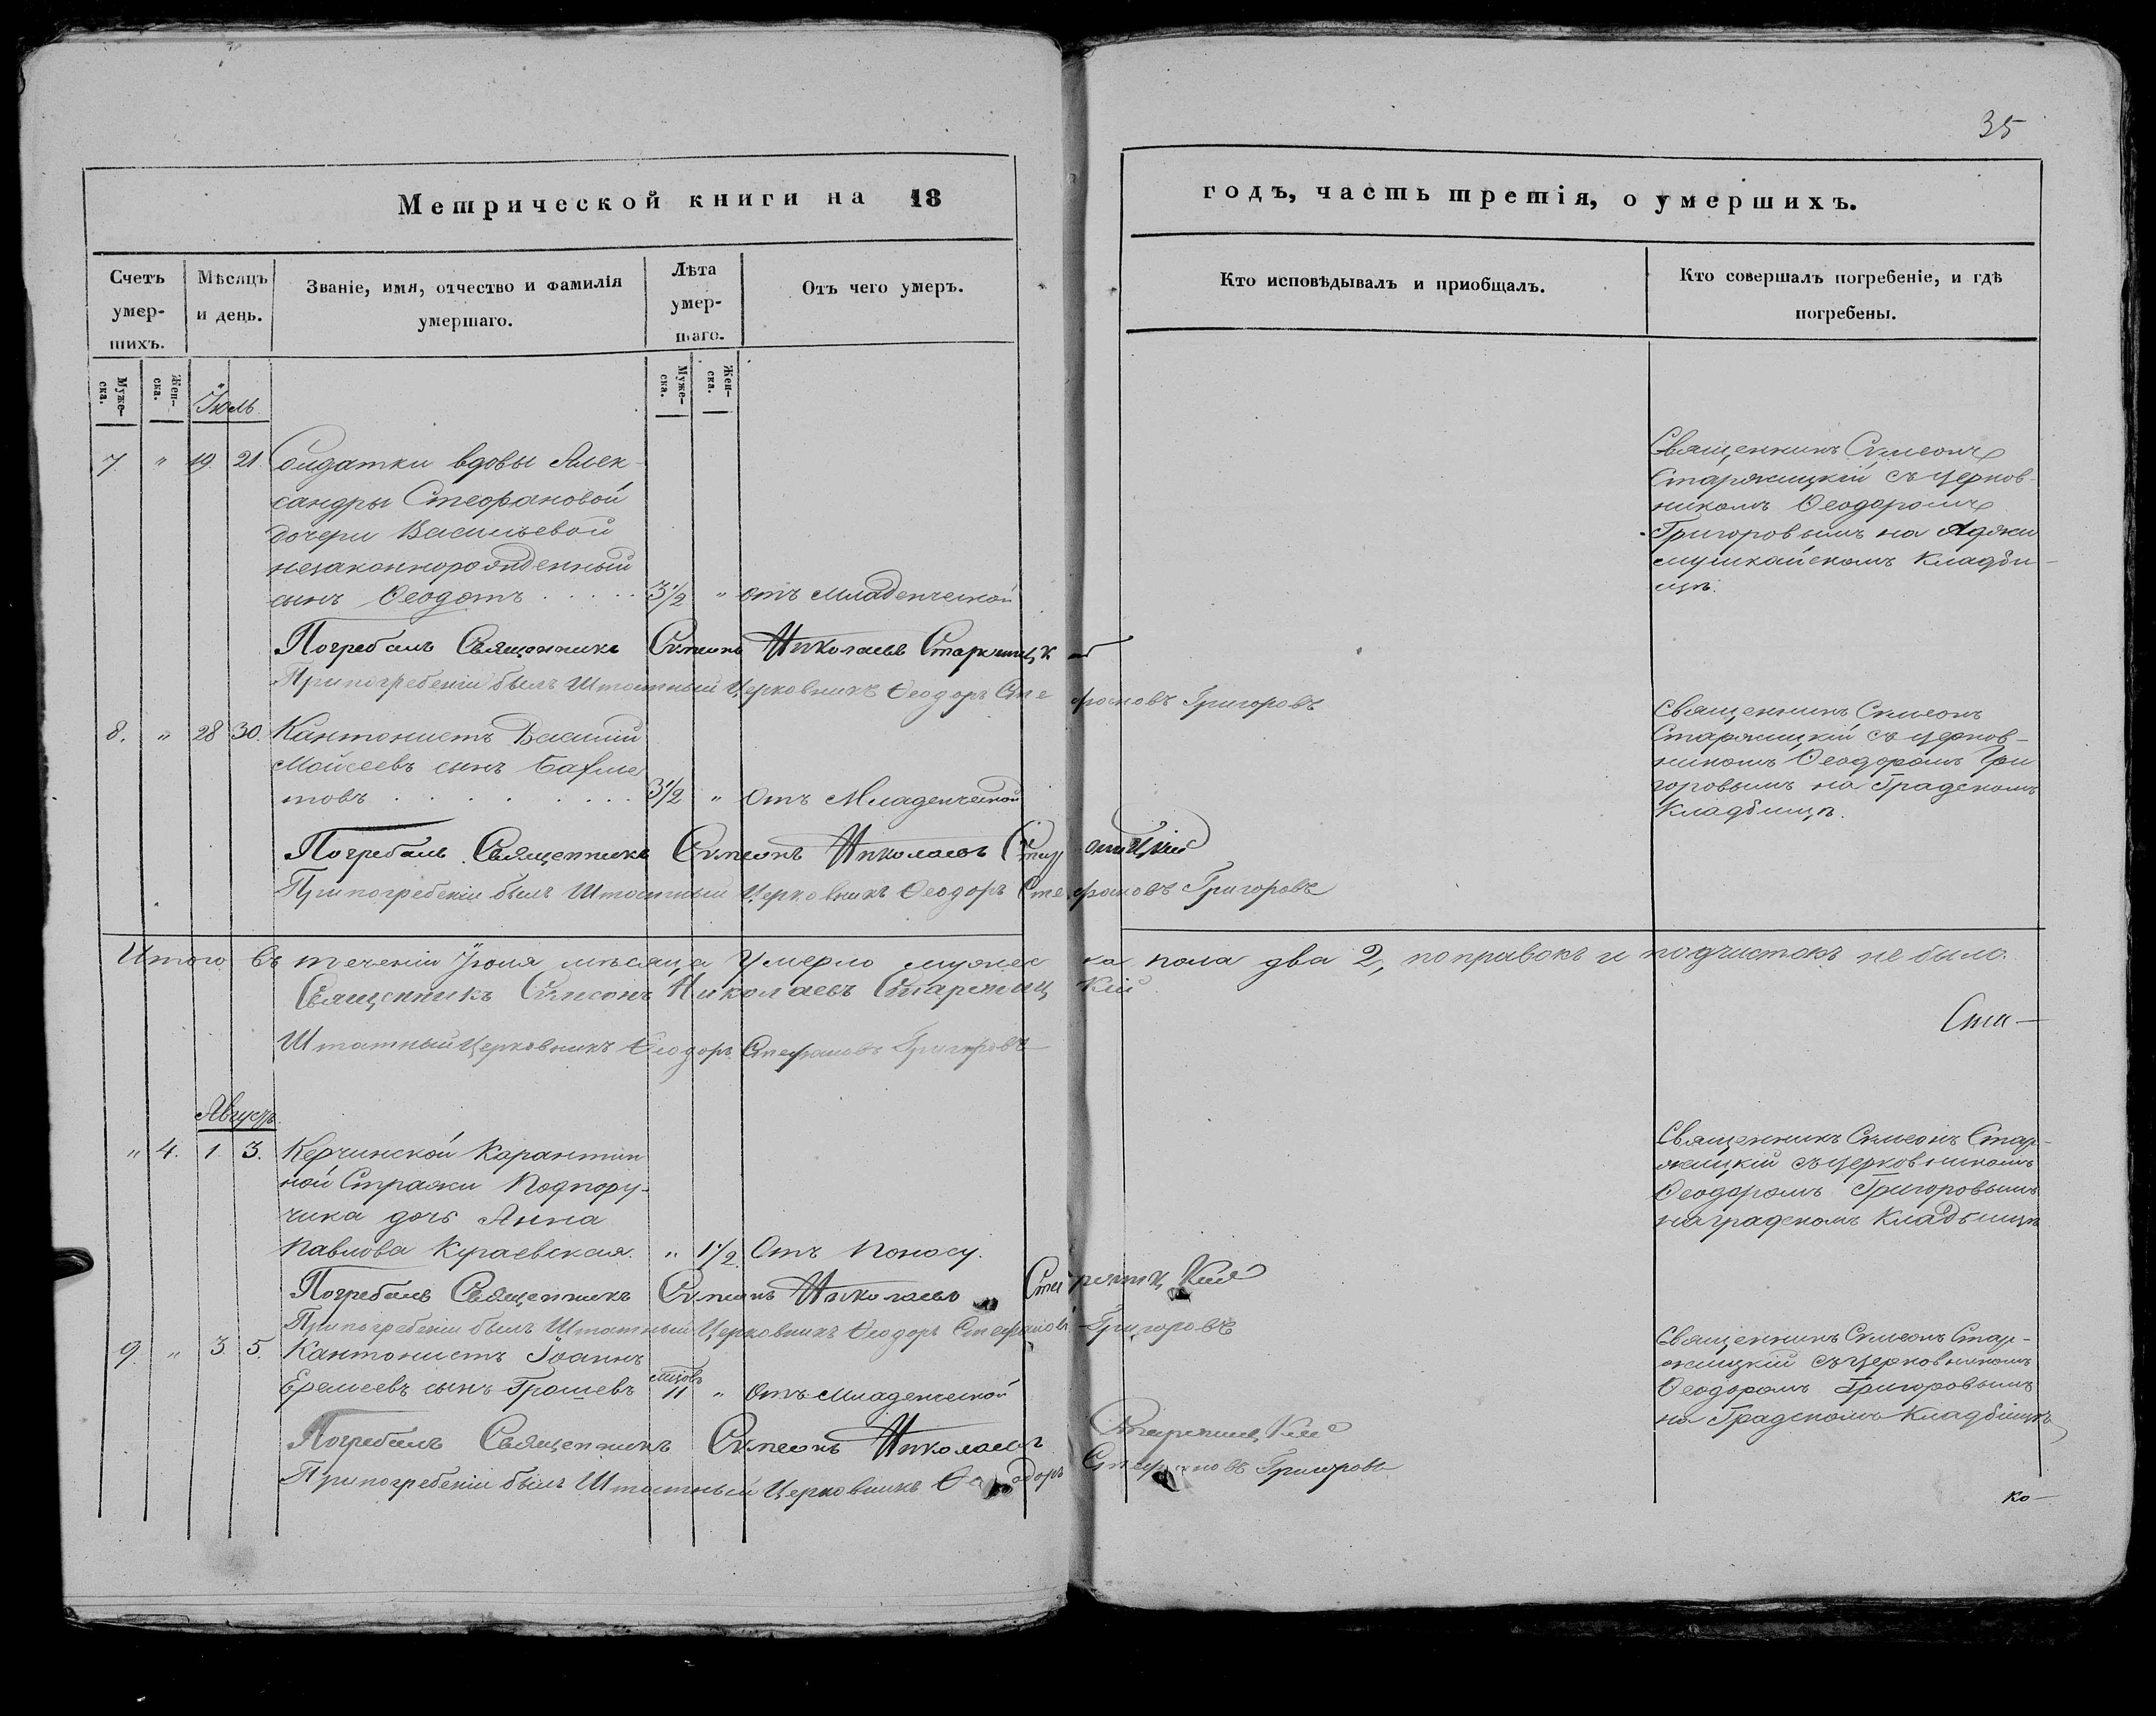 35
Метрической книги на 18
годъ, часть третія, о умершихъ.
Счетъ умер-шихъ.
Мѣсяцъ и день.
Званіе, имя, отчество и фамилія умершаго.
Лѣта умер-шаго.
Отъ чего умеръ.
Кто исповѣдывалъ и приобщалъ.
Кто совершалъ погребеніе, и гдѣ погребены.
Муже-ска.
Жен-ска.
Іюль
Муже-ска.
Жен-ска.
7. " 19. 21. Солдатки вдовы Алек-
сандры Стефановой
дочери Васильевой
незаконнорожденный
сынъ Ѳеодотъ 3 1/2 " отъ младенческой
Священникъ Симеонъ
Старжицкій съ церков-
никомъ Ѳеодоромъ
Григоровымъ на Аджи
мушкайскомъ кладби-
щѣ.
Погребалъ Священникъ Симеонъ Николаевъ
При погребеніи былъ Штатный Церковникъ Ѳеодоръ Стефановъ Григоровъ
8. " 28 30. Кантонистъ Василій
Мойсеевъ сынъ
товъ 3 1/2 " Отъ Младенческой
Священникъ Симеонъ
Старжицкій съ церков-
никомъ Ѳеодоромъ Гри
горовымъ на Градскомъ
Кладбищѣ.
Погребалъ Священникъ Симеонъ Николаевъ Старжицкій
При погребеніи былъ Штатный Церковникъ Ѳеодоръ Стефановъ Григоровъ
Итого въ теченіи Іюля мѣсяца умерло мужеска пола два 2, поправокъ и подчистокъ не было.
Священникъ Симеонъ Николаевъ Старжицкій
Ста-
Штатный Церковникъ Ѳеодоръ Стефановъ Григоровъ
Августъ
" 4. 1 3. Керчинской Карантин
ной Стражи Подпору-
чика дочь Анна
Павлова Кугаевская. " 1 1/2 Отъ поносу.
Священникъ Симеонъ Стар-
жицкій съ церковникомъ
Ѳеодоромъ Григоровымъ
на градскомъ кладбищѣ
Погребалъ Священникъ Симеонъ Николаевъ Старжицкій
При погребеніи былъ Штатный Церковникъ Ѳеодоръ Стефановъ Григоровъ
9. " 3 5. Кантонистъ Іоаннъ
Еремеевъ сынъ Грошевъ мѣсцовъ 11 " Отъ Младенческой
Священникъ Симеонъ Стар-
жицкій съ церковникомъ
Ѳеодоромъ Григоровымъ
на Градскомъ Кладбищѣ
Погребалъ Священникъ Симеонъ Николаевъ Старжицкій
При погребеніи былъ Штатный Церковникъ Ѳеодоръ Стефановъ Григоровъ
ко-